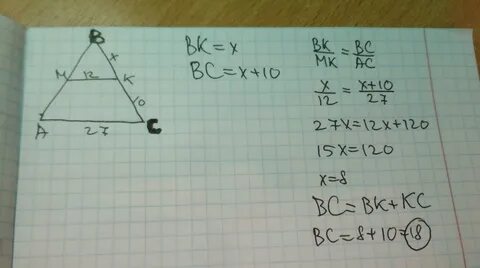 B
x
M 12 K
10
A C
27
BK=x
BC=x+10
BK/MK = BC/AC
x/12 = x+10/27
27x=12x+120
15x=120
x=8
BC=BK+KC
BC=8+10=18